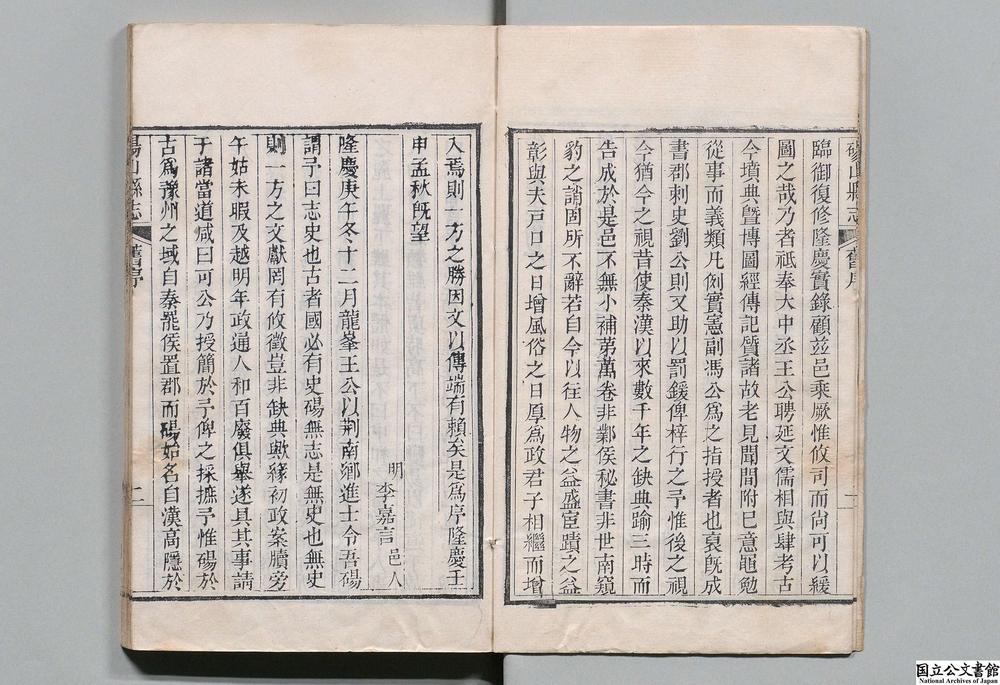 碭山縣志 舊序 二
臨御復修隆慶實錄顧並邑乘厥惟攸司而尚可以緩
圖之哉乃者祇奉大中丞王公聘延文儒相與肆考古
今墳典曁傳圖經傳記質諸故老見聞間附已意黽勉
從事而義類凡例實憲副馮公爲之指授者也裒旣成
書郡刺史劉公則又助以罰鍰俾梓行之予惟後之視
今猶今之視昔使秦漢以來數千年之缺典踰三時而
告成於是邑不無小補苐萬卷非鄴侯秘書非世南窺
豹之誚固所不辭若自今以徃人物之益盛宦蹟之益
彰與夫戸口之日增風俗之日厚爲政君子相繼而增
入焉則一方之勝因文以傳端有賴矣是爲序隆慶壬
申孟秋旣望
明 李嘉言 邑人
隆慶庚午冬十二月龍峯王公以荆南鄕進士令吾碭
謂予曰志史也古者國必有史碭無志是無史也無史
則一方之文獻罔有攸徵豈非缺典歟緣初政案牘旁
午姑未暇及越明年政通人和百廢俱舉遂具其事請
于諸當道咸曰可公乃授簡於予俾之採摭予惟碭於
古爲豫州之域自秦罷侯置郡而碭始名自漢高隱於
碭山縣志 舊序 二
国立公文書館
National Archives of Japan